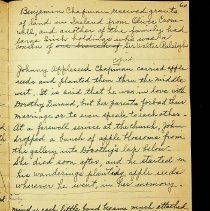 60
Benjamin Chapman received grants
of land in Ireland from Oliver Crom-
well, and another of the family had
large Irish holdings who was a
cousin of one branch of Sir Walter Raleigh
Johnny Appleseed Chapman carried apple
seeds and planted them thru the middle
west. It is said that he was in love with
Dorothy Durand, but her parents forbad their
marriage or to even speak to each other -
At a farewell service at the church, John
dropped a bunch of apple blossoms from
the gallery into Dorothy's lap below.
She died soon after, and he started on
his wanderings planting apple seeds
wherever he went, in her memory.
each little band became much attached